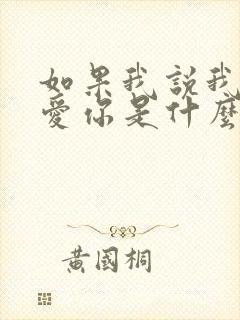 如果我說我
愛你是什麼
黃國桐